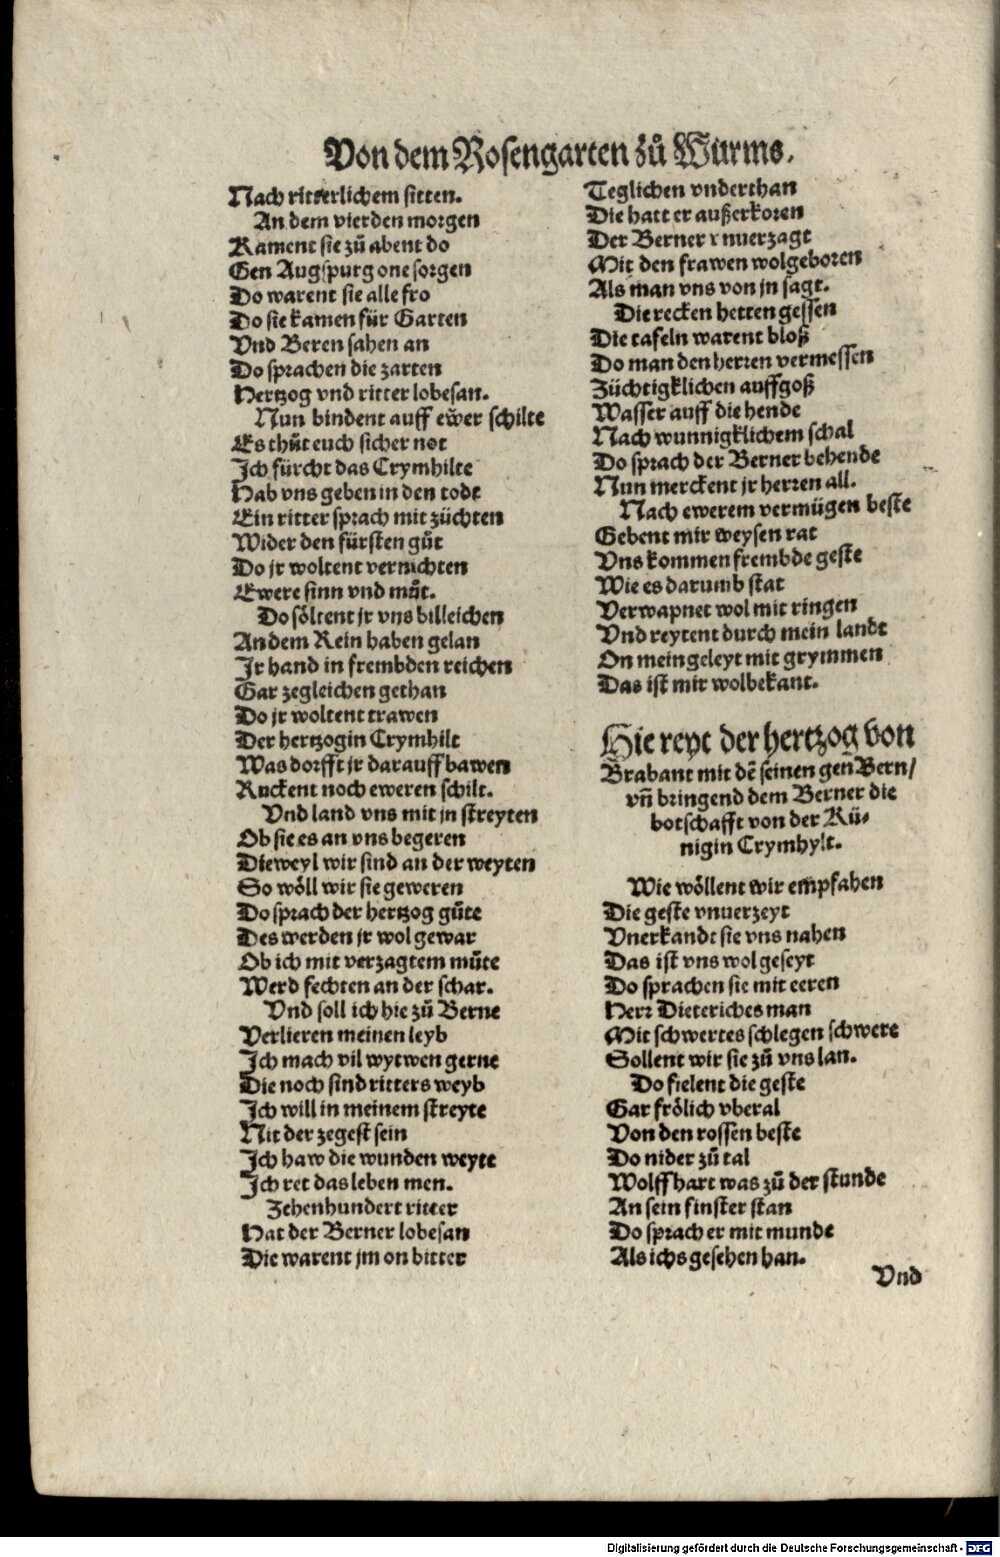 Von dem Rosengarten zů Wurms.
Nach ritterlichem sitten.
An dem vierden morgen
Kament sie zů abent do
Gen Augspurg one sorgen
Do warent sie alle fro
Do sie kamen für Garten
Vnd Beren sahen an
Do sprachen die zarten
Hertzog vnd ritter lobesan.
Nun bindent auff ewer schilte
Es thůt euch sicher not
Ich fürcht das Crymhilte
Hab vns geben in den todt
Ein ritter sprach mit züchten
Wider den fürsten gůt
Do jr woltent vernichten
Ewere sinn vnd můt.
Do söltent jr vns billeichen
An dem Rein haben gelan
Ir hand in frembden reichen
Gar zegleichen gethan
Do jr woltent trawen
Der hertzogin Crymhilt
Was dorfft jr darauff bawen
Ruckent noch eweren schilt.
Vnd land vns mit jn streyten
Ob sie es an vns begeren
Dieweyl wir sind an der weyten
So wöll wir sie geweren
Do sprach der hertzog gůte
Des werden jr wol gewar
Ob ich mit verzagtem můte
Werd fechten an der schar.
Vnd soll ich hie zů Berne
Verlieren meinen leyb
Ich mach vil wytwen gerne
Die noch sind ritters weyb
Ich will in meinem streyte
Nit der zegest sein
Ich haw die wunden weyte
Ich ret das leben men.
Zehenhundert ritter
Hat der Berner lobesan
Die warent jm on bitter
Teglichen vnderthan
Die hatt er außerkoren
Der Berner vnuerzagt
Mit den frawen wolgeboren
Als man vns von jn sagt.
Die recken hetten gessen
Die tafeln warent bloß
Do man den herren vermessen
Züchtigklichen auffgoß
Wasser auff die hende
Nach wunnigklichem schal
Do sprach der Berner behende
Nun merckent jr herren all.
Nach ewerem vermügen beste
Gebent mir weysen rat
Vns kommen frembde geste
Wie es darumb stat
Verwapnet wol mit ringen
Vnd reytent durch mein landt
On mein geleyt mit grymmen
Das ist mir wolbekant.
Hie reyt der hertzog von
Brabant mit dẽ seinen gen Bern/
vñ bringend dem Berner die
botschafft von der Kü-
nigin Crymhylt.
Wie wöllent wir empfahen
Die geste vnuerzeyt
Vnerkandt sie vns nahen
Das ist vns wol geseyt
Do sprachen sie mit eeren
Herr Dieteriches man
Mit schwertes schlegen schwere
Sollent wir sie zů vns lan.
Do fielent die geste
Gar frölich vberal
Von den rossen beste
Do nider zů tal
Wolffhart was zů der stunde
An sein finster stan
Do sprach er mit munde
Als ichs gesehen han.
Vnd
Digitalisierung gefördert durch die Deutsche Forschungsgemeinschaft - DFG